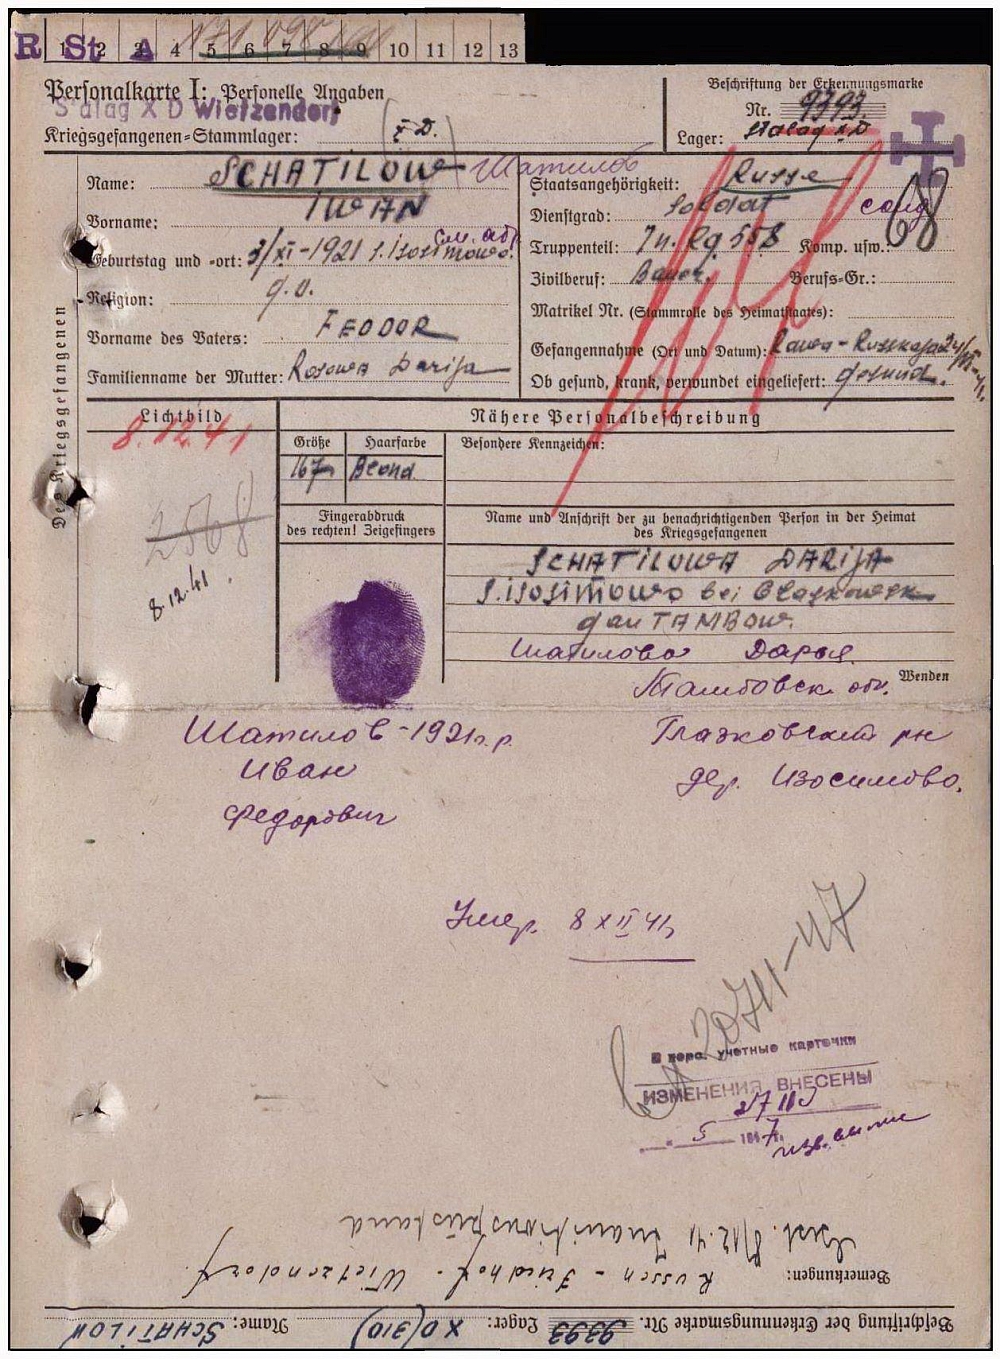 R St A
1 2 3 4 5 6 7 8 9 10 11 12 13
Personalkarte I: Personelle Angaben
Beschriftung der Erkennungsmarke
Stalag X D Wietzendorf
Nr. 9393.
Kriegsgefangenen-Stammlager: (X D.)
Lager: Stalag X D
Des Kriegsgefangenen
Name: SCHATILOW Шатилов
Staatsangehörigkeit: Russe
Vorname: IWAN
Dienstgrad: Soldat солд
68
Geburtstag und -ort: 3/XI-1921 S.isosimowo.
См. об.
Truppenteil: In. Rg 558 Komp. usw.
Zivilberuf: Bauer. Berufs-Gr.:
Religion: g.o.
Matrikel Nr. (Stammrolle des Heimatstaates):
Vorname des Vaters: FEODOR
Gefangennahme (Ort und Datum): Rawa-Russkaja
Familienname der Mutter: Darija
Ob gesund, krank, verwundet eingeliefert: gesund.
Lichtbild
Nähere Personalbeschreibung
8.12.41
Größe Haarfarbe Besondere Kennzeichen:
167 Blond.
2568
8.12.41.
Fingerabdruck
des rechten! Zeigefingers
Name und Anschrift der zu benachrichtigenden Person in der Heimat
des Kriegsgefangenen
SCHATILOWA DARIJA
S.isosimowo bei
gau TAMBOW.
Шатилова Дарья.
Wenden
Тамбовск. обл.
Шатилов-1921г.р.
Глазковский рн
Иван
дер. Изосимово.
Федорович
Умер. 8 XII 41г
В перс. учетные карточки
ИЗМЕНЕНИЯ ВНЕСЕНЫ
5 1947г.
Gest. 8/12.41
Bemerkungen: Russen-Friedhof-Wietzendorf.
Beschriftung der Erkennungsmarke Nr. 9393 Lager: X D (310) Name: SCHATILOW